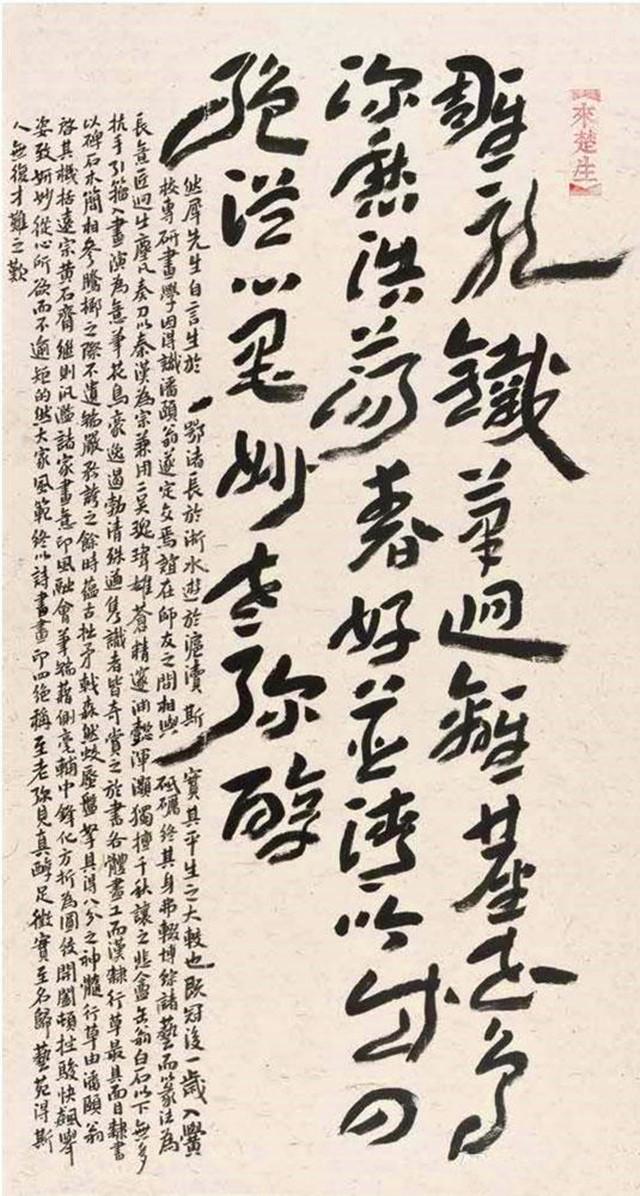 來楚生
雕龍鐵筆迥難走鳥
洪春好並吟四
絕從心墨妙老彌醇
然犀先生自言生於鄂渚長於浙水遊於滬瀆斯實其平生之大較也既冠後一歲入黌
校專研畫學因得識潘頤翁遂定交焉誼在師友之間相與砥礪終其身弗輟博綜諸藝而篆法為
長匠迥生塵凡奏刀以秦漢為宗兼用二吳瑰瑋雄蒼精邃渾灝獨擅千秋讓之悲盦缶翁白石以下無多
抗手引籀入畫演為意筆花鳥豪逸過勃清殊遒雋識者皆奇賞之於書各體盡工而漢隸行草最具面目隸書
以碑石木簡相參騰擲之際不遺端嚴之餘時蘊古拙矛戟森然蛟蜃盤拏具得八分之神髓行草由潘頤翁
啓其機括遠宗黃石齋繼則汎濫諸家畫意印風融會筆端藉側毫輔中鋒化方折為圓絞開闔頓挫駿快飆舉
姿致妍妙從心所欲而不逾矩的然大家風範終以詩書畫印四絕稱至老彌見真醇足徵實至名歸藝苑得斯
人無復才難之歎